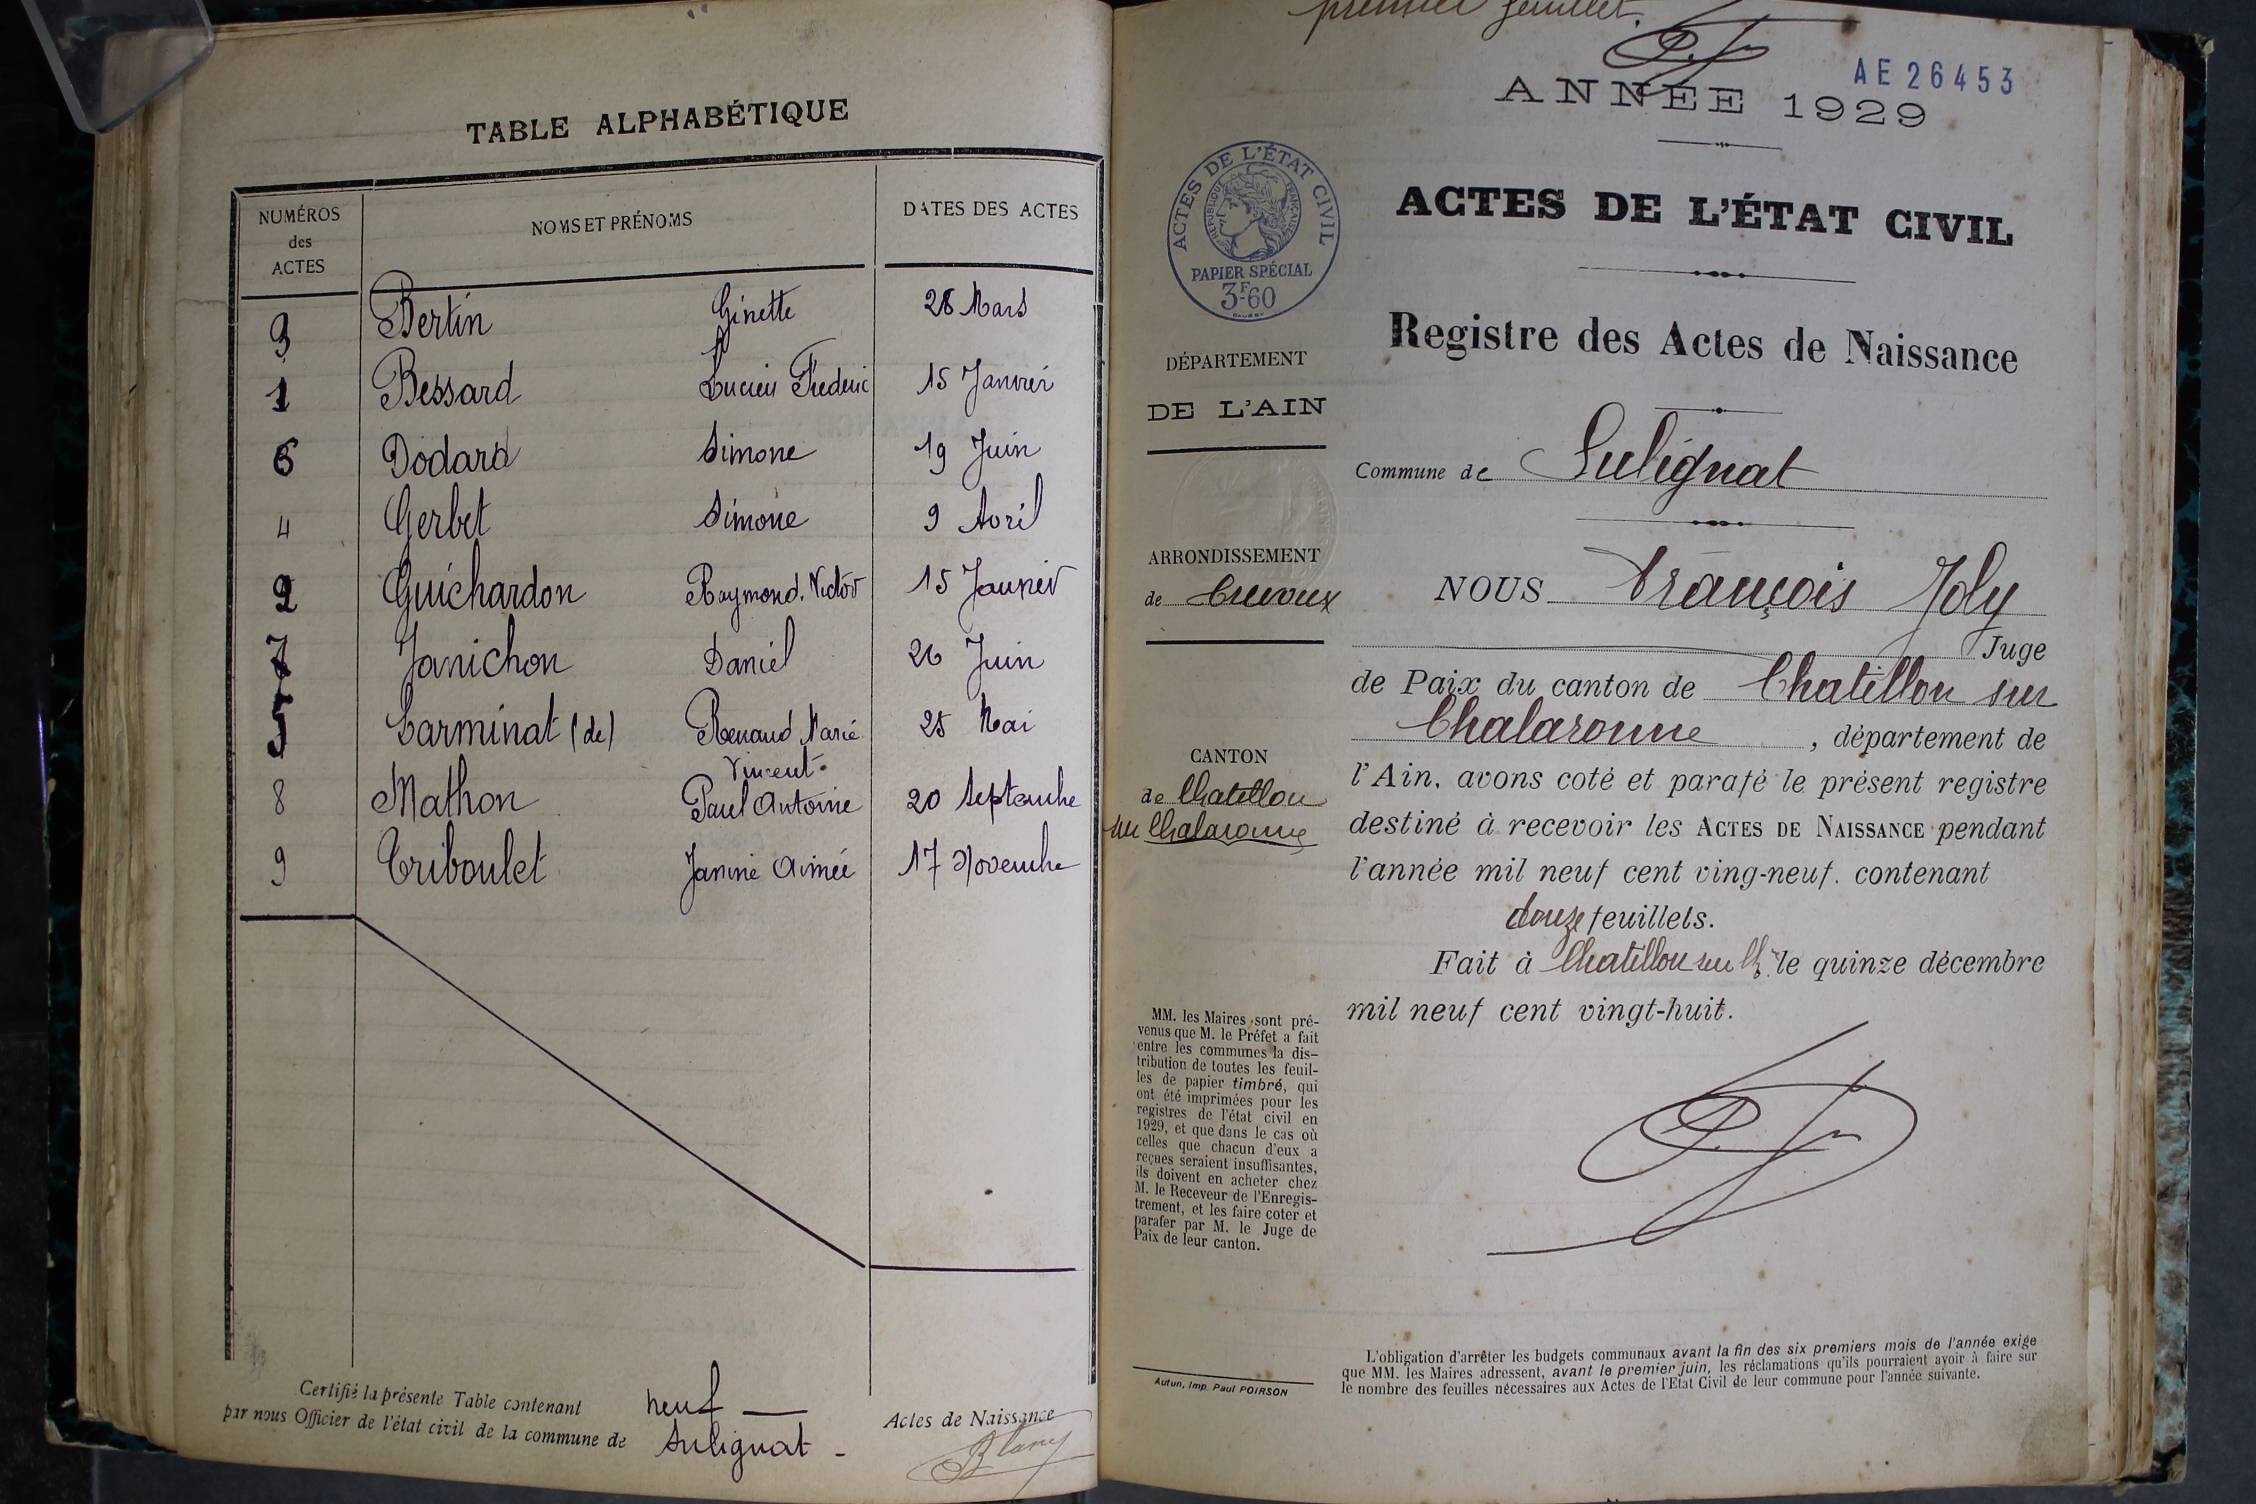 TABLE ALPHABÉTIQUE
NUMÉROS des ACTES NOMS ET PRÉNOMS DATES DES ACTES
3 Bertin Ginette 28 Mars
1 Bessard Lucien Frederic 15 Janvier
6 Dodard Simone 19 Juin
4 Gerbet Simone 9 Avril
2 Guichardon Raymond. Victor 15 Janvier
7 Janichon Daniel 26 Juin
5 Carminat (de) Renaud Marie 25 Mai
Vincent.
8 Mathon Paul Antoine 20 Septembre
9 Triboulet Janine Aimée 17 Novembre
Certifié la présente Table contenant neuf Actes de Naissance
par nous Officier de l'état civil de la commune de Sulignat
premier feuillet.
AE 26453
ANNÉE 1929
ACTES DE L'ÉTAT CIVIL
RÉPUBLIQUE FRANÇAISE
PAPIER SPÉCIAL
3F-60
ACTES DE L'ÉTAT CIVIL
Registre des Actes de Naissance
DÉPARTEMENT
DE L'AIN
Commune de Sulignat
ARRONDISSEMENT
de Trevoux
CANTON
de Chatillon
sur Chalaronne
NOUS François Joly
Juge
de Paix du canton de Chatillon sur
Chalaronne, département de
l'Ain, avons coté et parafé le présent registre
destiné à recevoir les ACTES DE NAISSANCE pendant
l'année mil neuf cent ving-neuf. contenant
douze feuillets.
Fait à Chatillon sur Ch. le quinze décembre
mil neuf cent vingt-huit.
MM. les Maires sont pré-
venus que M. le Préfet a fait
entre les communes la dis-
tribution de toutes les feuil-
les de papier timbré, qui
ont été imprimées pour les
registres de l'état civil en
1929, et que dans le cas où
celles que chacun d'eux a
reçues seraient insuffisantes,
ils doivent en acheter chez
M. le Receveur de l'Enregis-
trement, et les faire coter et
parafer par M. le Juge de
Paix de leur canton.
Autun, Imp. Paul POIRSON
L'obligation d'arrêter les budgets communaux avant la fin des six premiers mois de l'année exige
que MM. les Maires adressent, avant le premier juin, les réclamations qu'ils pourraient avoir à faire sur
le nombre des feuilles nécessaires aux Actes de l'Etat Civil de leur commune pour l'année suivante.